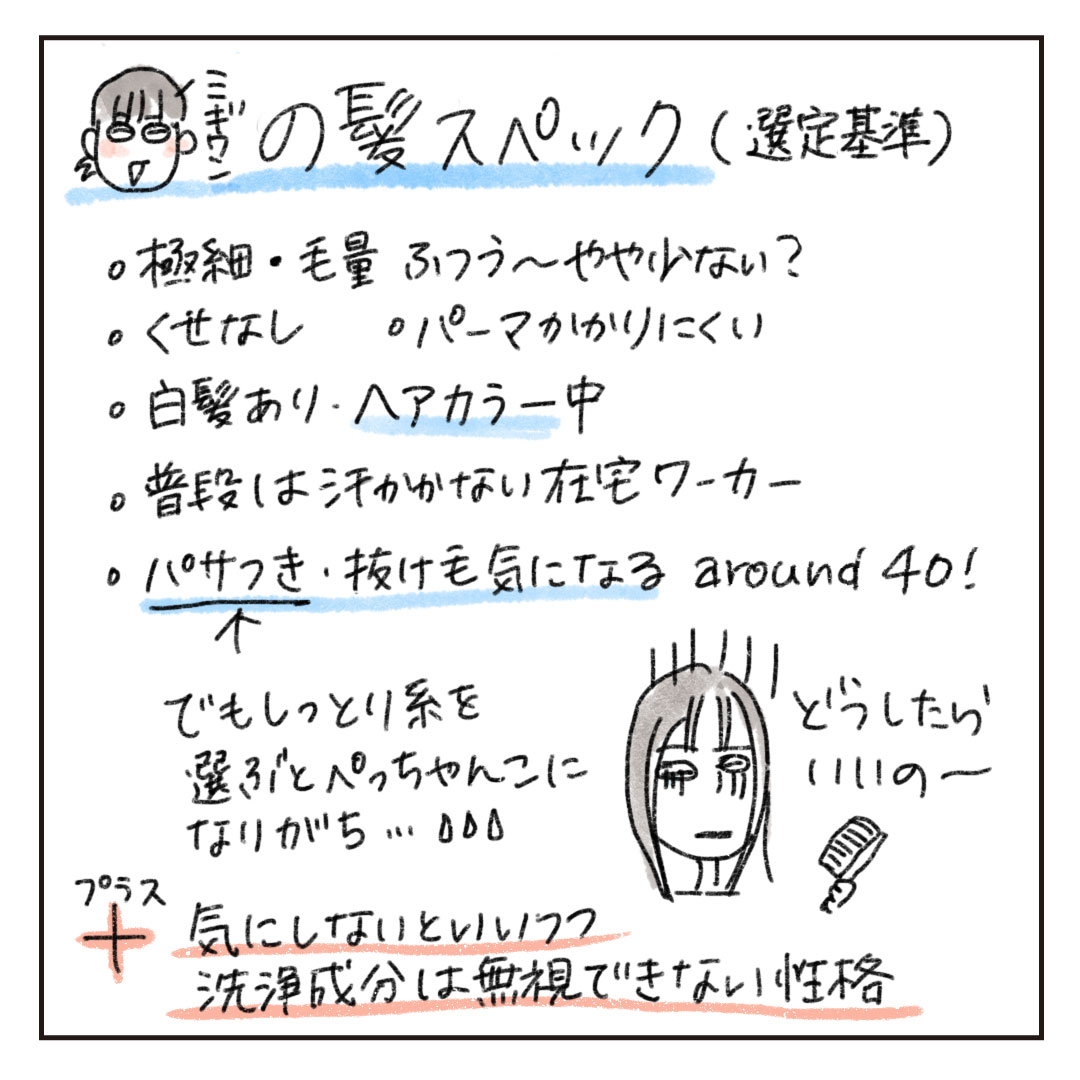 ミギウデの髪スペック(選定基準)
○極細・毛量 ふつう〜やや少ない?
○くせなし ○パーマかかりにくい
○白髪あり・ヘアカラー中
○普段は汗かかない在宅ワーカー
○パサつき・抜け毛気になる around 40!
↑
でもしっとり系を
選ぶとぺっちゃんこに
なりがち…
どうしたら
いいの〜
プラス
+
気にしないといいつつ
洗浄成分は無視できない性格